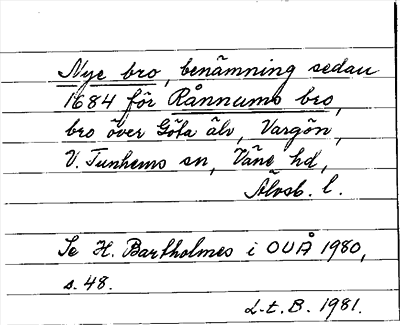 Nye bro, benämning sedan
1684 för Rånnums bro,
bro över Göta älv, Vargön,
V. Tunhems sn, Väne hd,
Älvsb. l.
Se H. Bartholmes i OUÅ 1980,
s. 48.
L-t. B. 1981.